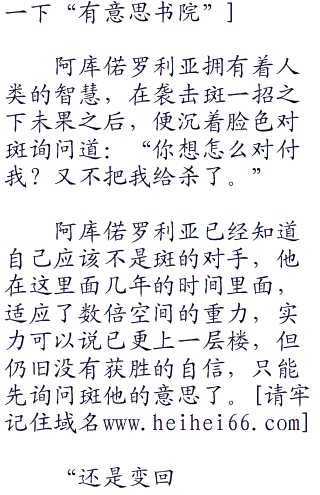 一下“有意思书院”]
阿库偌罗利亚拥有着人
类的智慧，在袭击斑一招之
下未果之后，便沉着脸色对
斑询问道：“你想怎么对付
我？又不把我给杀了。”
阿库偌罗利亚已经知道
自己应该不是斑的对手，他
在这里面几年的时间里面，
适应了数倍空间的重力，实
力可以说已更上一层楼，但
仍旧没有获胜的自信，只能
先询问斑他的意思了。[请牢
记住域名www.heihei66.com]
“还是变回